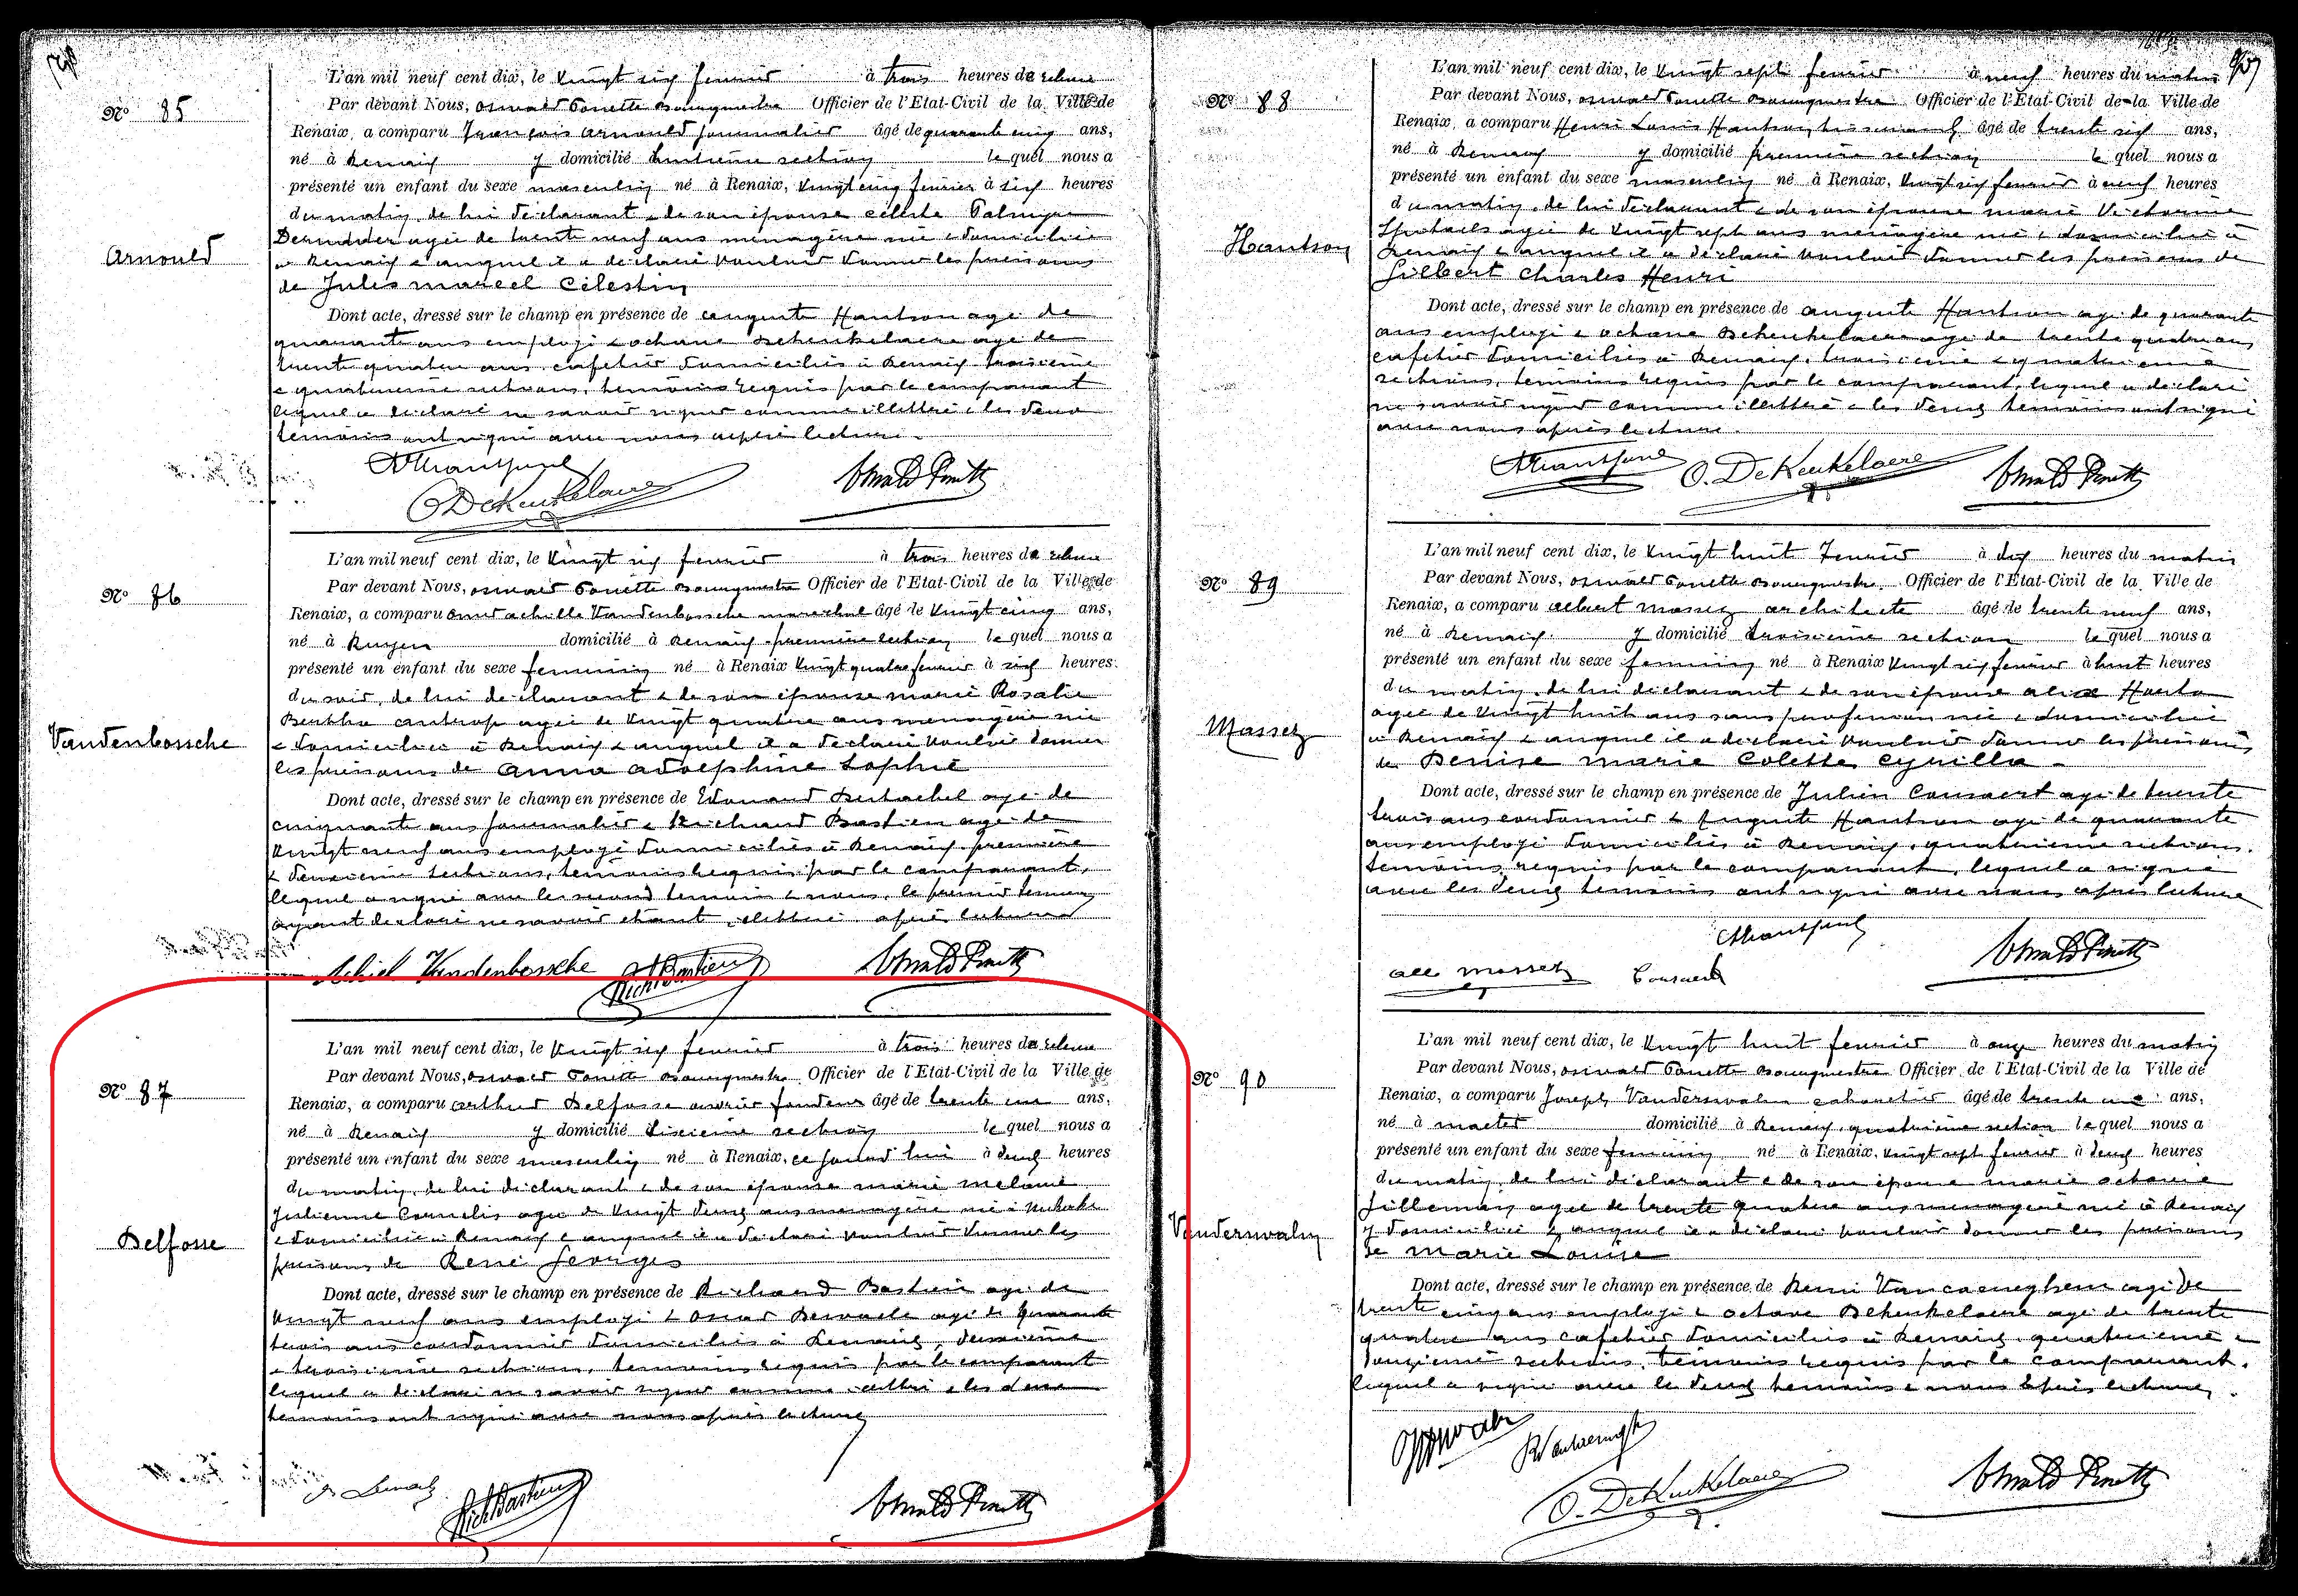 Nº 85
Arnould
L'an mil neuf cent dix, le Vingt six fevrier à trois heures de relevee
Par devant Nous, Oswald Ponette Bourgmestre Officier de l'Etat-Civil de la Ville de
Renaix, a comparu François Arnould journalier âgé de quarante cinq ans,
né à Renaix y domicilié huitieme section lequel nous a
présenté un enfant du sexe masculin né à Renaix, Vingt cinq fevrier à six heures
du matin, de lui déclarant & de son épouse Celeste Palmyre
agée de trente neuf ans menagère née & domiciliée
à Renaix & auquel il a déclaré vouloir donner les prénoms
de Jules Marcel Célestin
Dont acte, dressé sur le champ en présence de Auguste Hantson agé de
quarante ans employé & Octave Dekeukelaere agé de
trente quatre ans cafetier domiciliés à Renaix troisieme
& quatrieme sections, temoins requis par le comparant
lequel a déclaré ne savoir signer comme illettré & les deux
temoins ont signé avec nous après lecture.
O DeKeukelaere
Nº 86
Vandenbossche
L'an mil neuf cent dix, le Vingt six fevrier à trois heures de relevee
Par devant Nous, Oswald Ponette Bourgmestre Officier de l'Etat-Civil de la Ville de
Renaix, a comparu Omer Achille Vandenbossche marechal âgé de Vingt cinq ans,
né à Ruyen domicilié à Renaix premiere section lequel nous a
présenté un enfant du sexe feminin né à Renaix Vingt quatre fevrier à six heures
du soir, de lui déclarant & de son épouse Marie Rosalie
agée de Vingt quatre ans menagère née
& domiciliée à Renaix & auquel il a déclaré vouloir donner
les prénoms de Anna Adolphine Sophie
Dont acte, dressé sur le champ en présence de Edouard agé de
cinquante ans journalier & Richard Bastien agé de
Vingt neuf ans employé domiciliés à Renaix premiere
& deuxieme sections, temoins requis par le comparant,
lequel a signé avec le second temoin & nous, le premier temoin
ayant declaré ne savoir etant illettré après lecture
Achiel Vandenbossche Rich Bastien
Nº 87
Delfosse
L'an mil neuf cent dix, le Vingt six fevrier à trois heures de relevee
Par devant Nous, Oswald Ponette Bourgmestre Officier de l'Etat-Civil de la Ville de
Renaix, a comparu Arthur Delfosse ouvrier fondeur âgé de trente un ans,
né à Renaix y domicilié sixieme section lequel nous a
présenté un enfant du sexe masculin né à Renaix, ce jourd'hui à deux heures
du matin, de lui déclarant & de son épouse Marie Melanie
Julienne Cornelis agée de Vingt deux ans menagère née à
& domiciliée à Renaix & auquel il a déclaré vouloir donner les
prénoms de René Georges
Dont acte, dressé sur le champ en présence de Richard Bastien agé de
Vingt neuf ans employé & Oscar agé de quarante
trois ans cordonnier domiciliés à Renaix, deuxieme
& troisieme sections, temoins requis par le comparant
lequel a déclaré ne savoir signer comme illettré & les deux
temoins ont signé avec nous après lecture
Rich Bastien
Nº 88
Hantson
L'an mil neuf cent dix, le Vingt sept fevrier à neuf heures du matin
Par devant Nous, Oswald Ponette Bourgmestre Officier de l'Etat-Civil de la Ville de
Renaix, a comparu Henri Louis Hantson, tisserand âgé de trente six ans,
né à Renaix y domicilié premiere section lequel nous a
présenté un enfant du sexe masculin né à Renaix, Vingt six fevrier à neuf heures
du matin, de lui déclarant & de son épouse Marie Victorine
agée de Vingt sept ans menagère née & domiciliée à
Renaix & auquel il a déclaré vouloir donner les prénoms de
Gilbert Charles Henri
Dont acte, dressé sur le champ en présence de Auguste Hantson agé de quarante
ans employé & Octave Dekeukelaere agé de trente quatre ans
cafetier domiciliés à Renaix, troisieme & quatrieme
sections, temoins requis par le comparant, lequel a déclaré
ne savoir signer comme illettré & les deux temoins ont signé
avec nous après lecture.
O. DeKeukelaere
Nº 89
Massez
L'an mil neuf cent dix, le Vingt huit fevrier à dix heures du matin
Par devant Nous, Oswald Ponette Bourgmestre Officier de l'Etat-Civil de la Ville de
Renaix, a comparu Albert Massez architecte âgé de trente neuf ans,
né à Renaix y domicilié troisieme section lequel nous a
présenté un enfant du sexe feminin né à Renaix Vingt six fevrier à huit heures
du matin, de lui déclarant & de son épouse Alice
agée de Vingt huit ans sans profession née & domiciliée
à Renaix & auquel il a déclaré vouloir donner les prénoms
de Denise Marie Colette Cyrilla
Dont acte, dressé sur le champ en présence de Julien agé de trente
trois ans cordonnier & Auguste Hantson agé de quarante
ans employé domiciliés à Renaix, quatrieme sections.
temoins requis par le comparant, lequel a signé
avec les deux temoins ont signé avec nous après lecture
Massez
Nº 90
L'an mil neuf cent dix, le Vingt huit fevrier à onze heures du matin
Par devant Nous, Oswald Ponette Bourgmestre Officier de l'Etat-Civil de la Ville de
Renaix, a comparu Joseph cabaretier âgé de trente une ans,
né à Mater domicilié à Renaix, quatrieme section lequel nous a
présenté un enfant du sexe feminin né à Renaix, Vingt sept fevrier à deux heures
du matin, de lui déclarant & de son épouse Marie Octavie
agée de trente quatre ans menagère née à Renaix
y domiciliée & auquel il a déclaré vouloir donner les prénoms
de Marie Louise
Dont acte, dressé sur le champ en présence de Remi agé de
trente cinq ans employé & Octave Dekeukelaere agé de trente
quatre ans cafetier domiciliés à Renaix, quatrieme &
sections, temoins requis par le comparant.
lequel a signé avec les deux temoins & nous après lecture.
O. DeKeukelaere